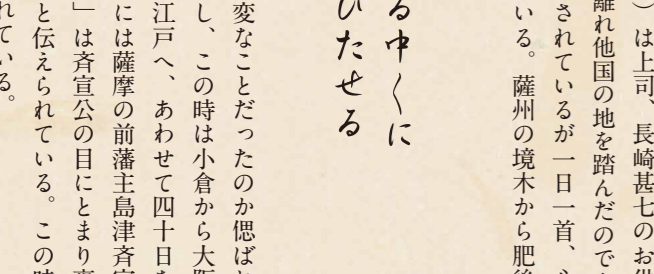 ）は上司、長崎甚七のお供
離れ他国の地を踏んだので
されているが一日一首、
いる。薩州の境木から肥後
る中〱に
ひたせる
変なことだったのか偲ばれ
し、この時は小倉から大阪
江戸へ、あわせて四十日
には薩摩の前藩主島津斉宣
」は斉宣公の目にとまり
と伝えられている。この時
れている。